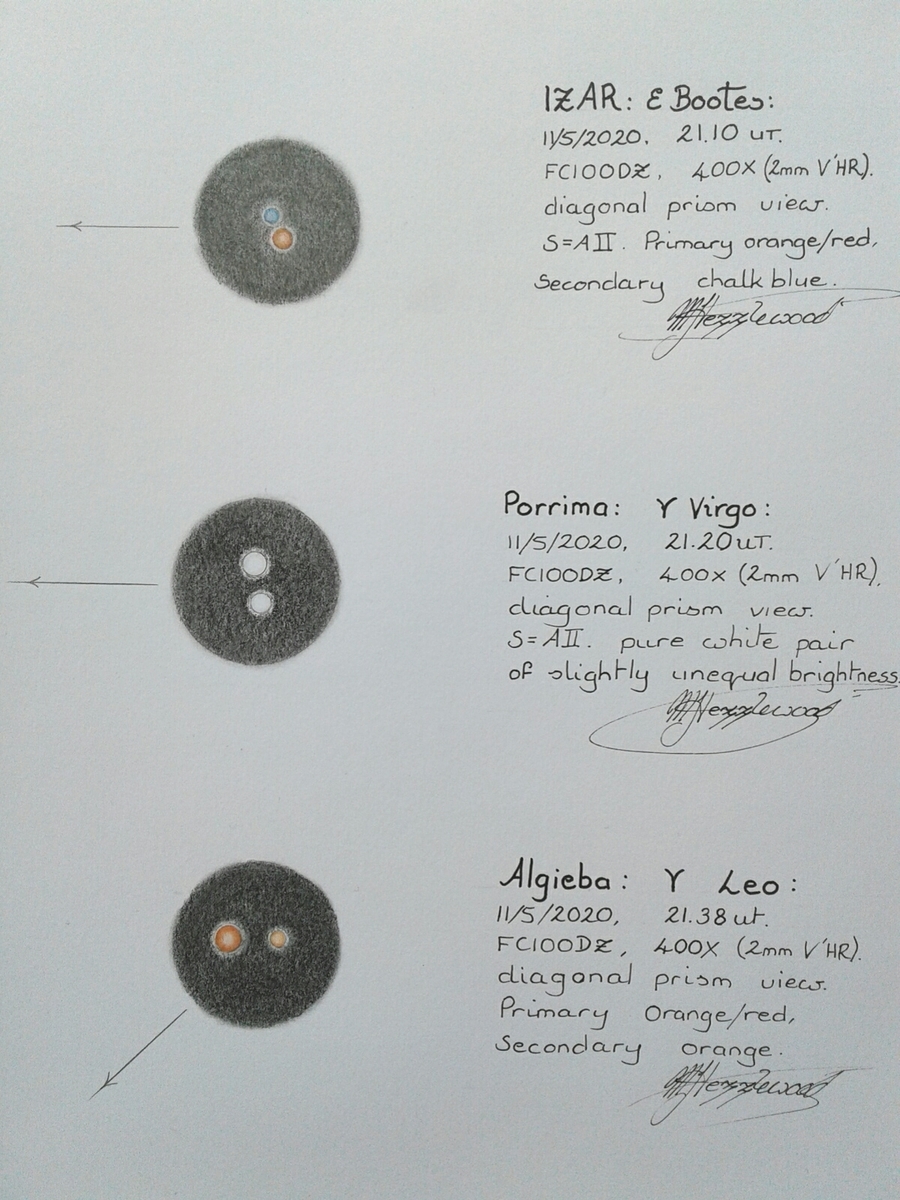 IZAR: ε Bootes:
11/5/2020, 21.10 UT.
FC100DZ, 400X (2mm V'HR).
diagonal prism view.
S=AII. Primary orange/red,
Secondary chalk blue.
Hezzlewood
Porrima: γ Virgo:
11/5/2020, 21.20 UT.
FC100DZ, 400x (2mm V'HR).
diagonal prism view.
S=AII. pure white pair
of slightly unequal brightness.
Hezzlewood
Algieba: γ Leo:
11/5/2020, 21.38 ut.
FC100DZ, 400X (2mm V'HR).
diagonal prism view.
Primary Orange/red,
Secondary orange.
Hezzlewood